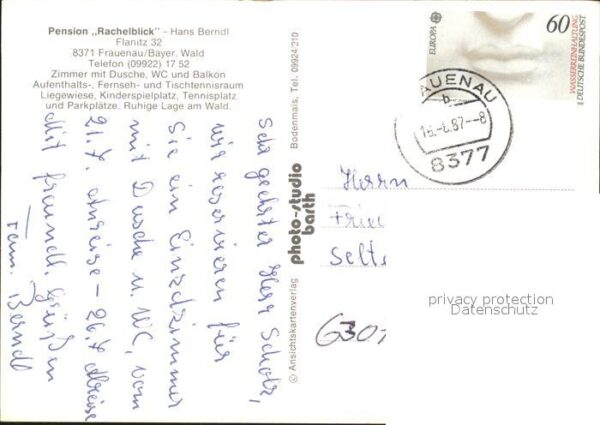 Pension „Rachelblick" - Hans Berndl
Flanitz 32
8371 Frauenau/Bayer. Wald
Telefon (09922) 17 52
Zimmer mit Dusche, WC und Balkon
Aufenthalts-, Fernseh- und Tischtennisraum
Liegewiese, Kinderspielplatz, Tennisplatz
und Parkplätze. Ruhige Lage am Wald.
Sehr geehrter Herr Scholz,
wir reservieren für
Sie ein Einzelzimmer
mit Dusche u. WC, vom
21.7. Anreise – 26.7. Abreise
Mit freundl. Grüßen
Fam. Berndl
© Ansichtskartenverlag photo-studio barth Bodenmais, Tel. 09924/210
EUROPA
60
WASSERREINHALTUNG
DEUTSCHE BUNDESPOST
AUENAU
b
87--8
8377
Herrn
Frie
Selte
630
privacy protection
Datenschutz